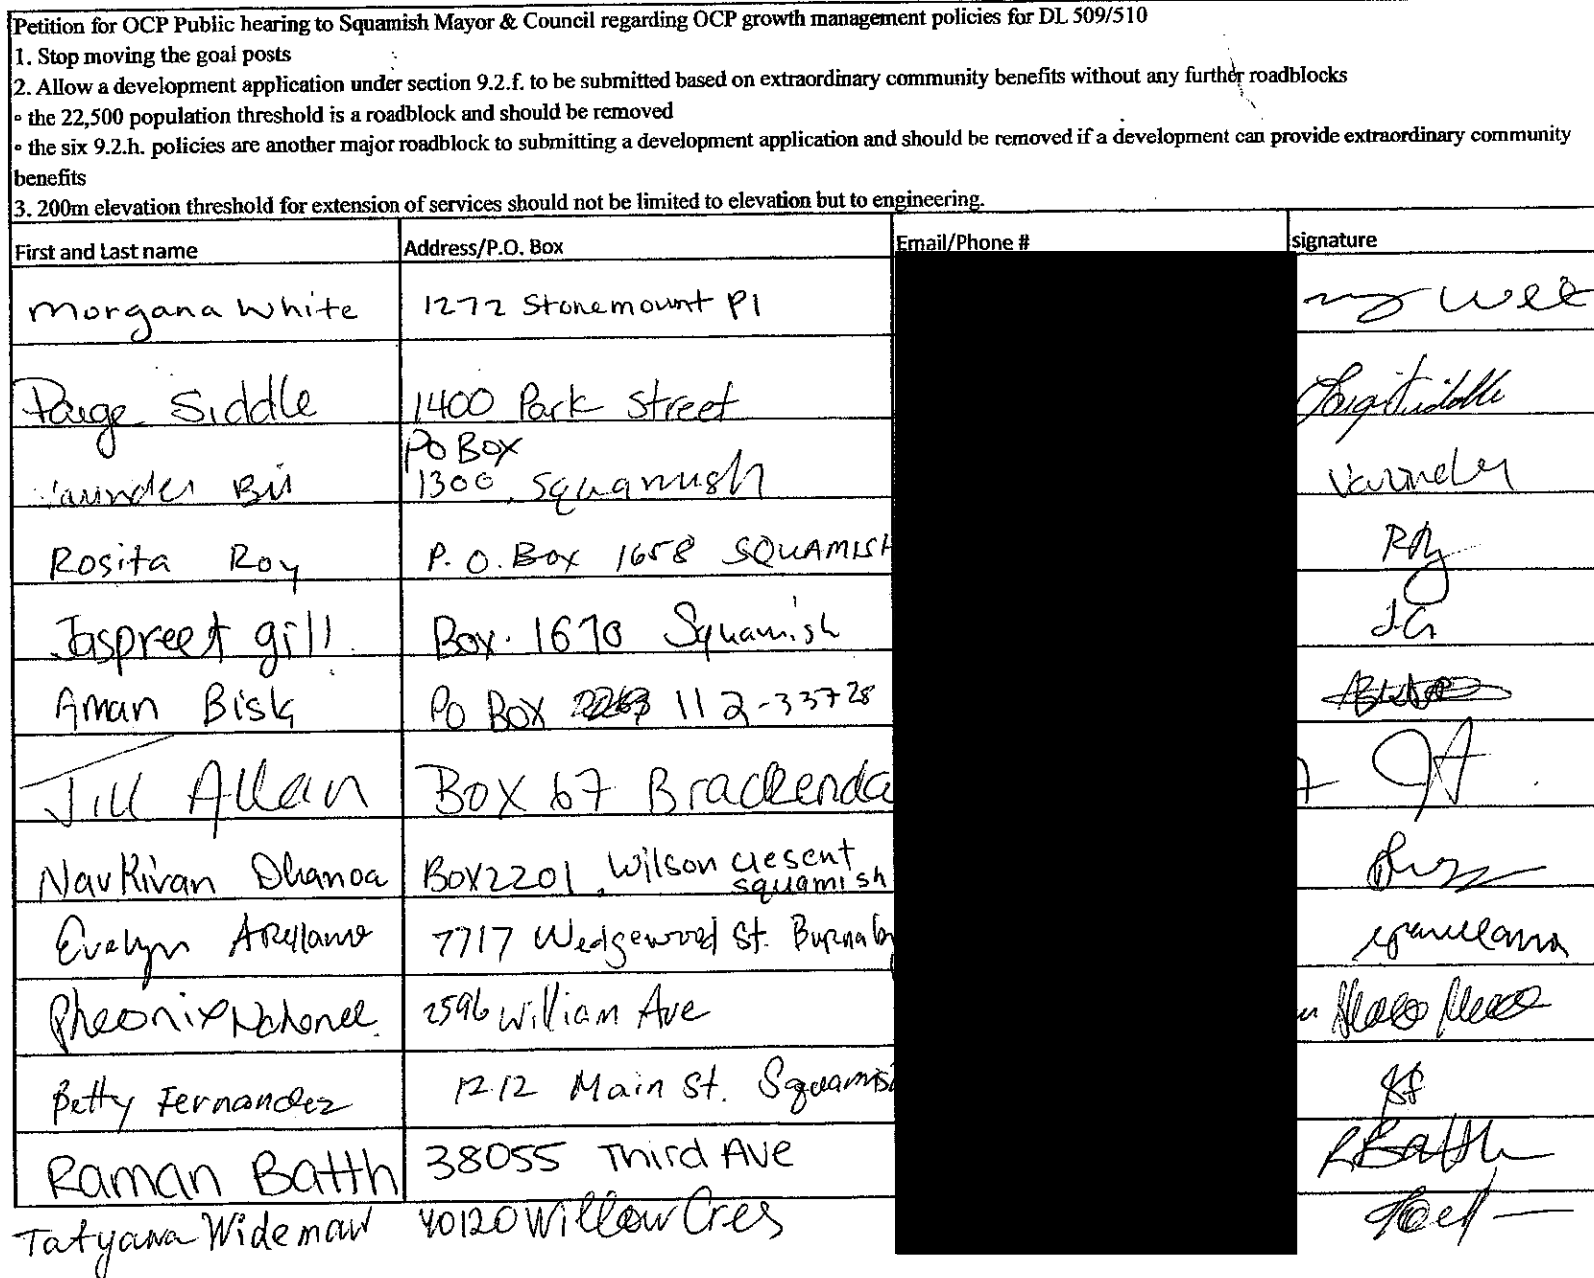 Petition for OCP Public hearing to Squamish Mayor & Council regarding OCP growth management policies for DL 509/510
1. Stop moving the goal posts
2. Allow a development application under section 9.2.f. to be submitted based on extraordinary community benefits without any further roadblocks
◦ the 22,500 population threshold is a roadblock and should be removed
◦ the six 9.2.h. policies are another major roadblock to submitting a development application and should be removed if a development can provide extraordinary community
benefits
3. 200m elevation threshold for extension of services should not be limited to elevation but to engineering.
First and Last name Address/P.O. Box Email/Phone # signature
Morgana White 1272 Stonemount Pl
Paige Siddle 1400 Park Street
PO Box
1300, Squamish Varinder
Rosita Roy P.O. Box 1658 SQUAMISH Roy
Jaspreet gill Box. 1670 Squamish J.G
Aman Bisla PO Box 112-33728
Jill Allan Box 67 Brackenda JA
NavKiran Dhanoa Box 2201, Wilson cresent
squamish
Evelyn Arellano 7717 Wedgewood St. Burnaby
Pheonix 2596 William Ave
Betty Fernandez 1212 Main St. Squamis
Raman Batth 38055 Third Ave RBatth
Tatyana Wideman 40120 Willow Cres